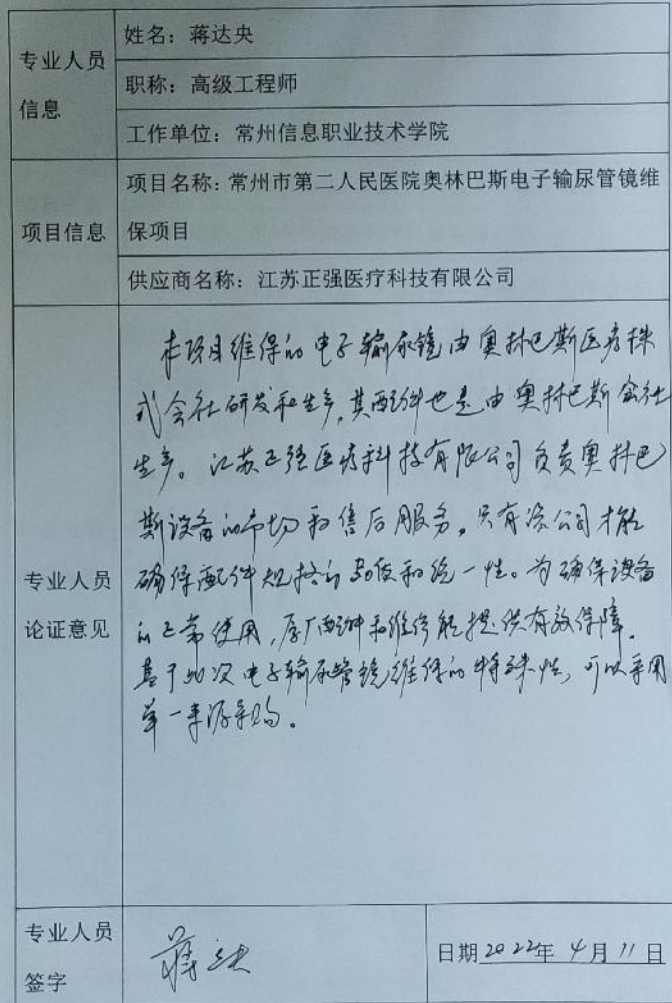 专业人员
信息
姓名：蒋达央
职称：高级工程师
工作单位：常州信息职业技术学院
项目信息
项目名称：常州市第二人民医院奥林巴斯电子输尿管镜维
保项目
供应商名称：江苏正强医疗科技有限公司
专业人员
论证意见
本项目维保的电子输尿镜由奥林巴斯医疗株
式会社研发和生产，其配件也是由奥林巴斯会社
生产。江苏正强医疗科技有限公司负责奥林巴
斯设备的市场和售后服务，只有该公司才能
确保配件规格的和统一性。为确保设备
的正常使用，原厂配件和维修能提供有效保障。
基于此次电子输尿管镜维保的特殊性，可以采用
单一来源采购。
专业人员
签字
蒋达央
日期2022年4月11日